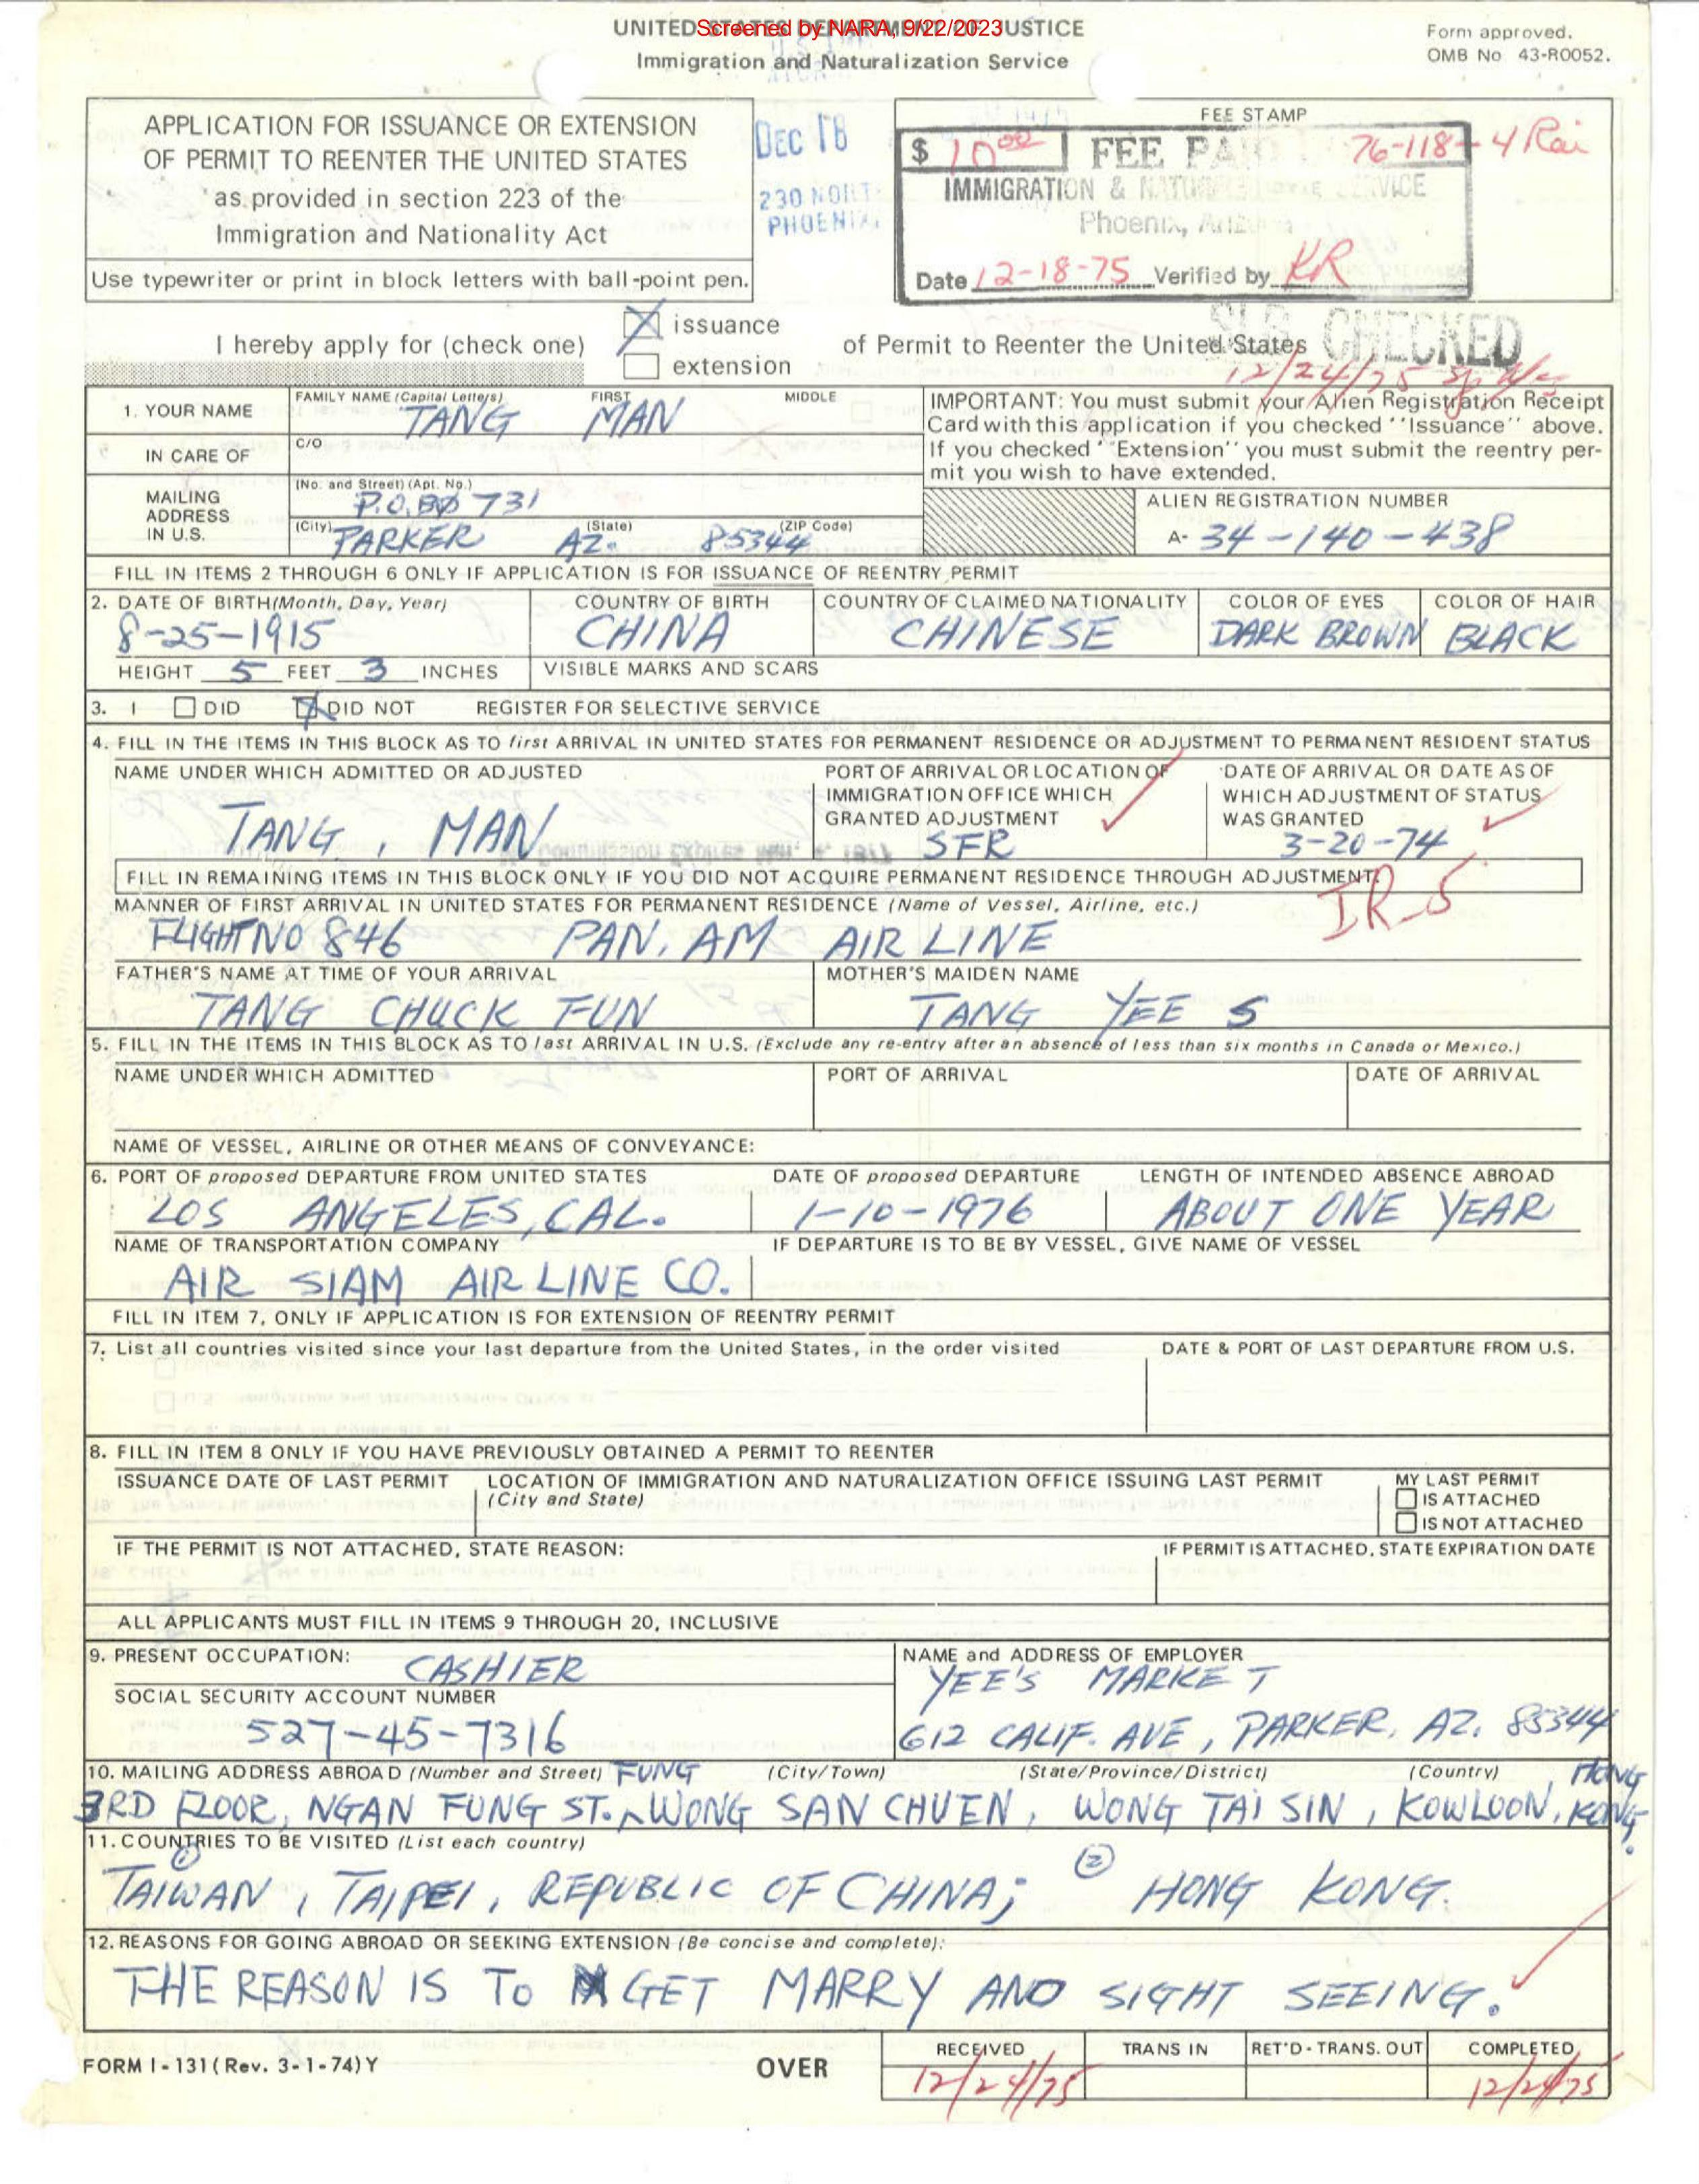 UNITED STATES DEPARTMENT OF JUSTICE
Screened by NARA, 9/22/2023
Immigration and Naturalization Service
Form approved.
OMB No 43-R0052.
APPLICATION FOR ISSUANCE OR EXTENSION
OF PERMIT TO REENTER THE UNITED STATES
as provided in section 223 of the
Immigration and Nationality Act
Use typewriter or print in block letters with ball-point pen.
DEC 18
230 NORT
PHOENIX,
FEE STAMP
$ 10.00 FEE PAID 76-118-4 Rai
IMMIGRATION & NATURALIZATION SERVICE
Phoenix, Arizona
Date 12-18-75 Verified by KR
I hereby apply for (check one)
issuance
extension
of Permit to Reenter the United States
CHECKED
12/24/75
1. YOUR NAME
FAMILY NAME (Capital Letters) FIRST MIDDLE
TANG MAN
IN CARE OF
C/O
MAILING ADDRESS IN U.S.
(No. and Street) (Apt. No.)
P.O. 731
(City) (State) (ZIP Code)
PARKER AZ. 85344
IMPORTANT: You must submit your Alien Registration Receipt
Card with this application if you checked ''Issuance'' above.
If you checked ''Extension'' you must submit the reentry per-
mit you wish to have extended.
ALIEN REGISTRATION NUMBER
A- 34-140-438
FILL IN ITEMS 2 THROUGH 6 ONLY IF APPLICATION IS FOR ISSUANCE OF REENTRY PERMIT
2. DATE OF BIRTH (Month, Day, Year) COUNTRY OF BIRTH COUNTRY OF CLAIMED NATIONALITY COLOR OF EYES COLOR OF HAIR
8-25-1915 CHINA CHINESE DARK BROWN BLACK
HEIGHT 5 FEET 3 INCHES VISIBLE MARKS AND SCARS
3. I DID DID NOT REGISTER FOR SELECTIVE SERVICE
4. FILL IN THE ITEMS IN THIS BLOCK AS TO first ARRIVAL IN UNITED STATES FOR PERMANENT RESIDENCE OR ADJUSTMENT TO PERMANENT RESIDENT STATUS
NAME UNDER WHICH ADMITTED OR ADJUSTED
TANG, MAN
PORT OF ARRIVAL OR LOCATION OF
IMMIGRATION OFFICE WHICH
GRANTED ADJUSTMENT
SFR
DATE OF ARRIVAL OR DATE AS OF
WHICH ADJUSTMENT OF STATUS
WAS GRANTED
3-20-74
FILL IN REMAINING ITEMS IN THIS BLOCK ONLY IF YOU DID NOT ACQUIRE PERMANENT RESIDENCE THROUGH ADJUSTMENT.
IR-5
MANNER OF FIRST ARRIVAL IN UNITED STATES FOR PERMANENT RESIDENCE (Name of Vessel, Airline, etc.)
FLIGHT NO 846 PAN. AM AIR LINE
FATHER'S NAME AT TIME OF YOUR ARRIVAL MOTHER'S MAIDEN NAME
TANG CHUCK FUN TANG YEE S
5. FILL IN THE ITEMS IN THIS BLOCK AS TO last ARRIVAL IN U.S. (Exclude any re-entry after an absence of less than six months in Canada or Mexico.)
NAME UNDER WHICH ADMITTED PORT OF ARRIVAL DATE OF ARRIVAL
NAME OF VESSEL, AIRLINE OR OTHER MEANS OF CONVEYANCE:
6. PORT OF proposed DEPARTURE FROM UNITED STATES DATE OF proposed DEPARTURE LENGTH OF INTENDED ABSENCE ABROAD
LOS ANGELES, CAL. 1-10-1976 ABOUT ONE YEAR
NAME OF TRANSPORTATION COMPANY IF DEPARTURE IS TO BE BY VESSEL, GIVE NAME OF VESSEL
AIR SIAM AIR LINE CO.
FILL IN ITEM 7, ONLY IF APPLICATION IS FOR EXTENSION OF REENTRY PERMIT
7. List all countries visited since your last departure from the United States, in the order visited DATE & PORT OF LAST DEPARTURE FROM U.S.
8. FILL IN ITEM 8 ONLY IF YOU HAVE PREVIOUSLY OBTAINED A PERMIT TO REENTER
ISSUANCE DATE OF LAST PERMIT LOCATION OF IMMIGRATION AND NATURALIZATION OFFICE ISSUING LAST PERMIT MY LAST PERMIT
(City and State) IS ATTACHED
IS NOT ATTACHED
IF THE PERMIT IS NOT ATTACHED, STATE REASON: IF PERMIT IS ATTACHED, STATE EXPIRATION DATE
ALL APPLICANTS MUST FILL IN ITEMS 9 THROUGH 20, INCLUSIVE
9. PRESENT OCCUPATION: CASHIER
SOCIAL SECURITY ACCOUNT NUMBER
527-45-7316
NAME and ADDRESS OF EMPLOYER
YEE'S MARKET
612 CALIF. AVE, PARKER, AZ. 85344
10. MAILING ADDRESS ABROAD (Number and Street) FUNG (City/Town) (State/Province/District) (Country) HONG
3RD FLOOR, NGAN FUNG ST. ^ WONG SAN CHUEN, WONG TAI SIN, KOWLOON, KONG.
11. COUNTRIES TO BE VISITED (List each country)
① TAIWAN, TAIPEI, REPUBLIC OF CHINA; ② HONG KONG.
12. REASONS FOR GOING ABROAD OR SEEKING EXTENSION (Be concise and complete):
THE REASON IS TO GET MARRY AND SIGHT SEEING.
FORM I-131 (Rev. 3-1-74) Y
OVER
RECEIVED TRANS IN RET'D-TRANS. OUT COMPLETED
12/24/75 12/24/75